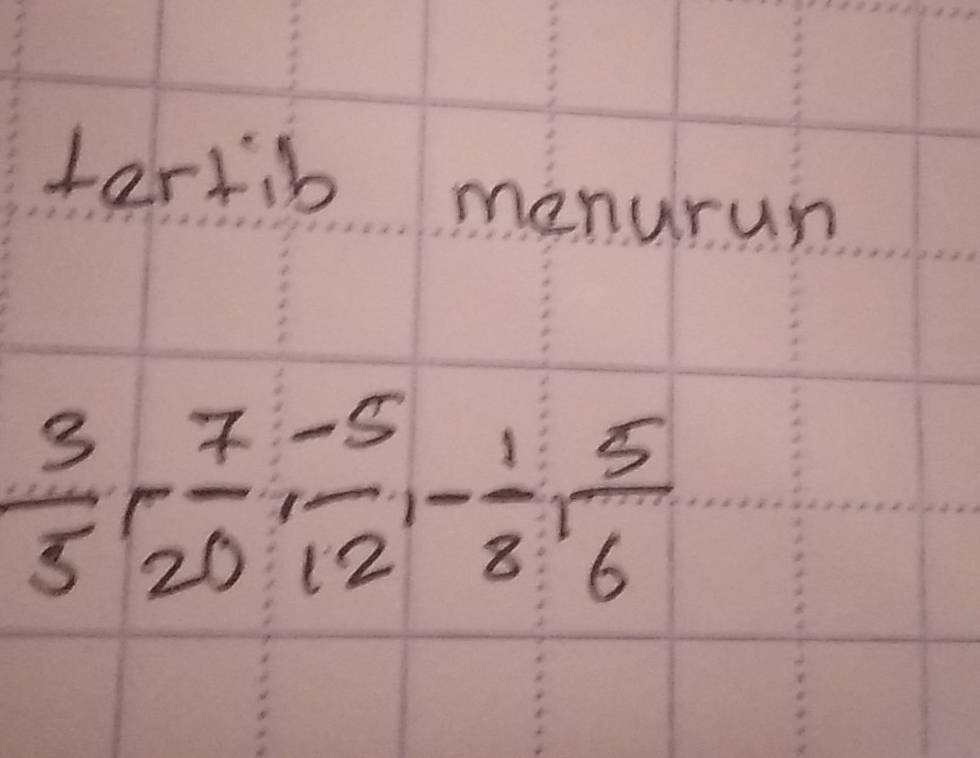 tertib menurun
3/5, -7/20, -5/12, -1/8, 5/6